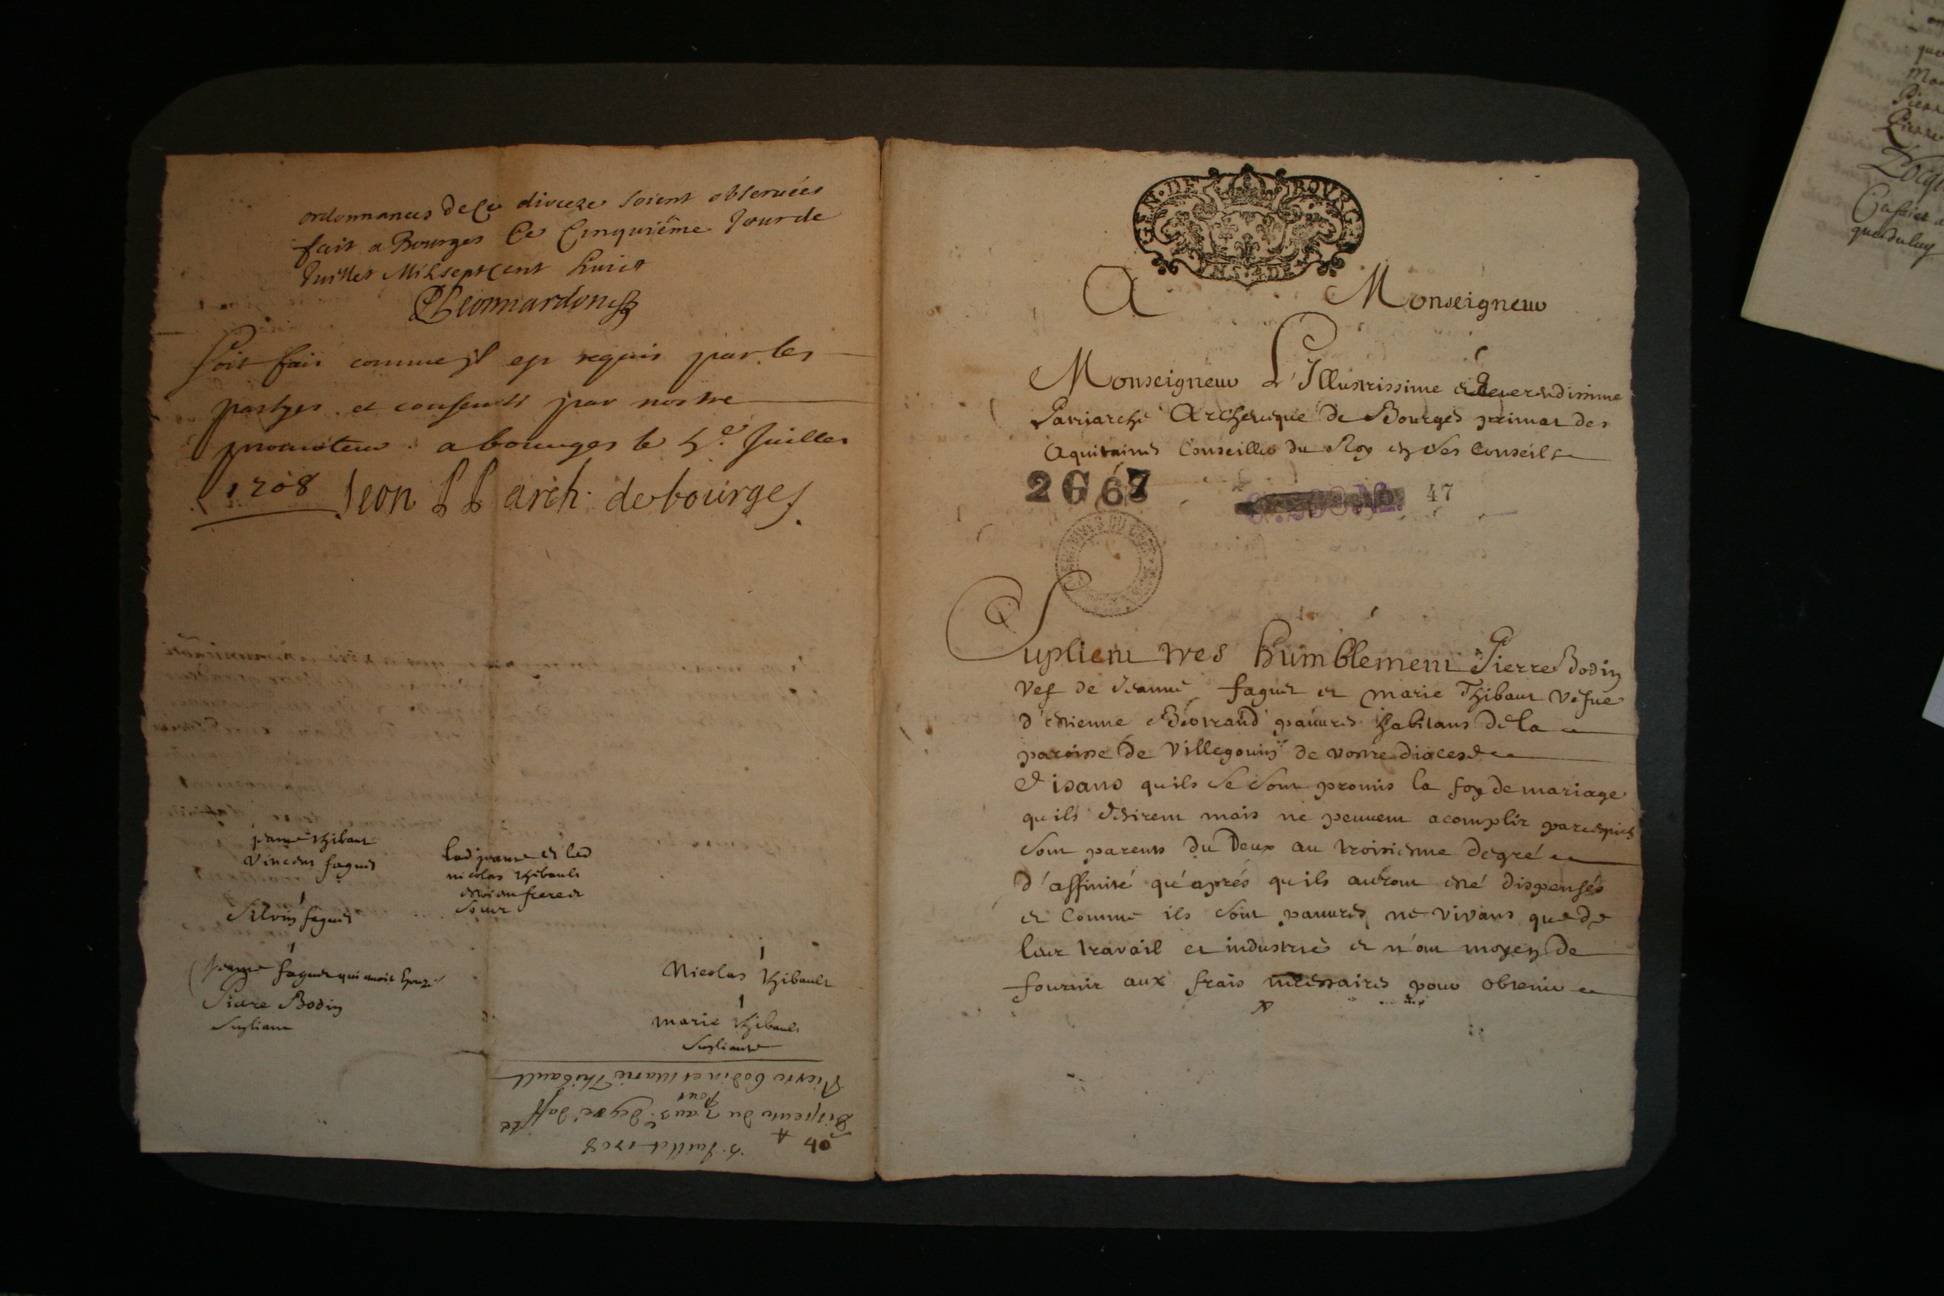 ordonnances de Ce dioceze soient observées
fait a Bourges Ce Cinquiême Jour de
Juillet Mil sept Cent huict
Leonnardon
soit fait comme il est requis par les
partyes et consenti par nostre
promoteur a bourges le 5e Juillet
1708 Leon arch. de bourges.
jeanne thibaut
Vincent faguet
lad jeanne et led
nicolas thibault
estoient frere et
soeur
Silvin faguet
jeanne faguet qui avoit epouzé
Nicolas thibault
Pierre Bodin
Supliant
marie thibault
Supliante
5. Juillet 1708
40
Dispense du 2 au 3e degré d'aff té
pour
Pierre bodin et Marie Thibault
GEN. DE BOURGES
A Monseigneur
Monseigneur L'Illustrissime et Reverendissime
Patriarche Archevesque de Bourges primat des
Aquitaines Conseiller du Roy en ses Conseils
2 G 67
47
Suplient tres humblement Pierre Bodin
vef de Jeanne faguet et marie Thibaut vefue
d'estienne Bertrand pauures habitans de la
paroisse de Villegouin de vostre diocese
Disans qu'ils se sont promis la foy de mariage
qu'ils desirent mais ne peuuent acomplir parcequils
sont parents du Deux au troisiesme degré
d'affinité qu'aprés qu'ils auront esté dispensés
et Comme ils sont pauures ne vivans que de
leur travail et industrie et n'ont moyen de
fournir aux frais necessaires pour obtenir